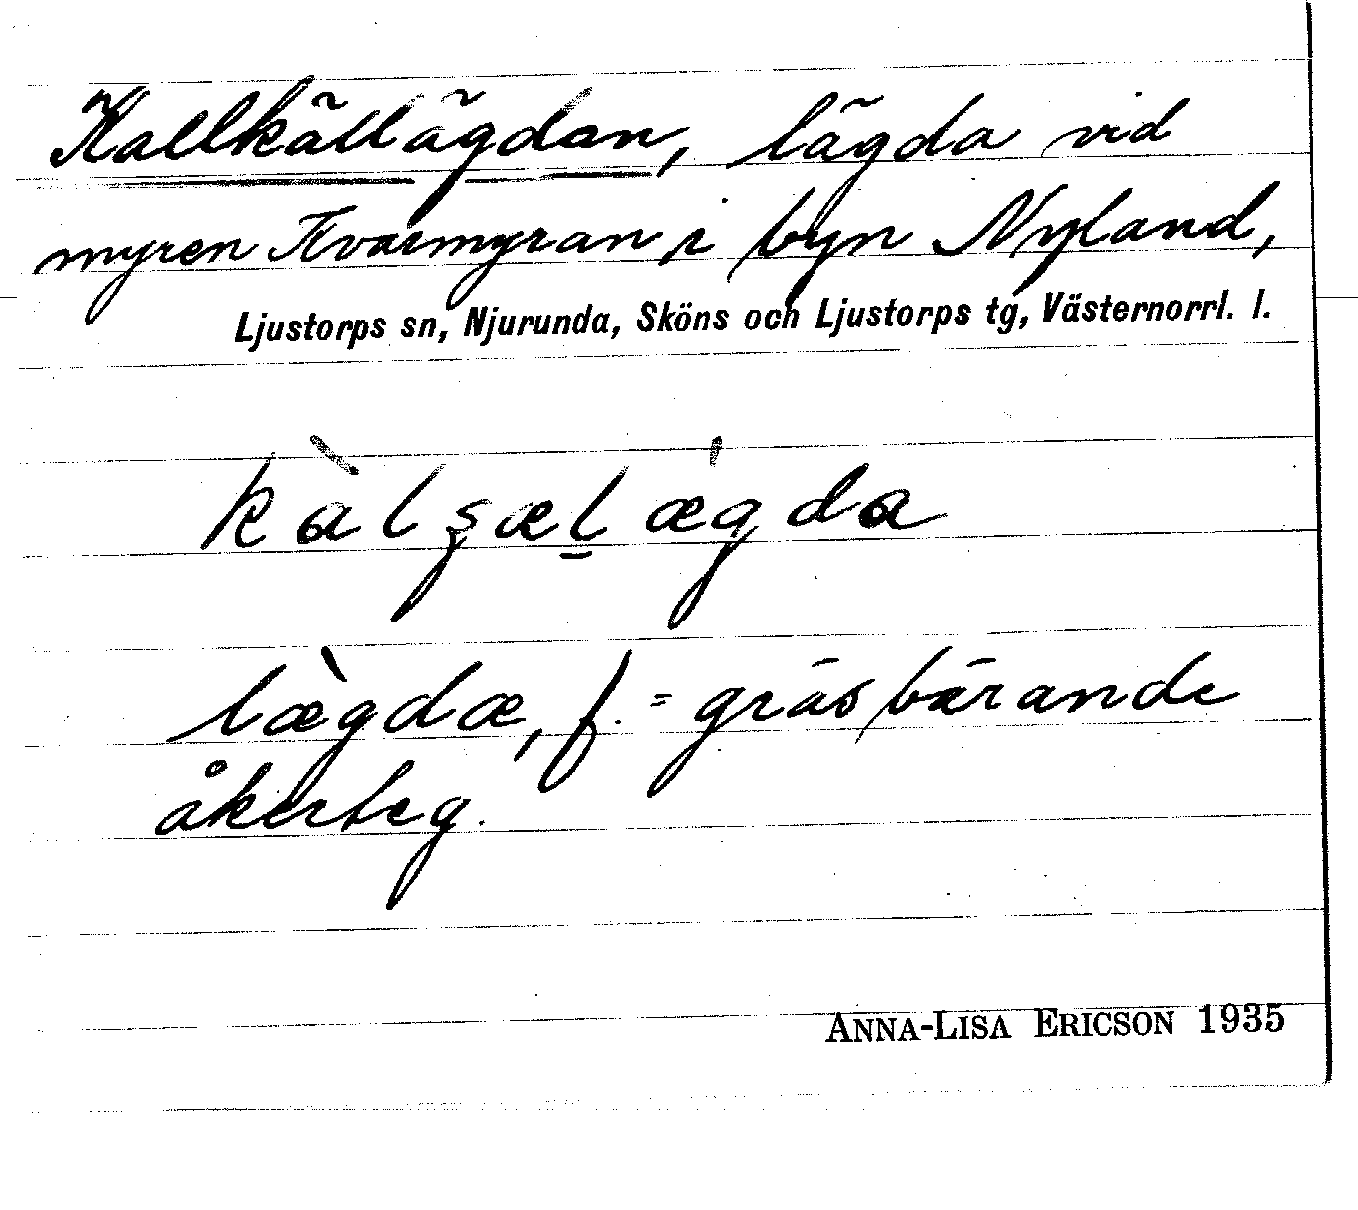 Kallkällägdan, lägda vid
myren Kvarmyran i byn Nyland,
Ljustorps sn, Njurunda, Sköns och Ljustorps tg, Västernorrl. l.
kàlʂæl̲ǽgda
læ̀gdæ, f. = gräsbärande
åkerteg.
ANNA-LISA ERICSON 1935